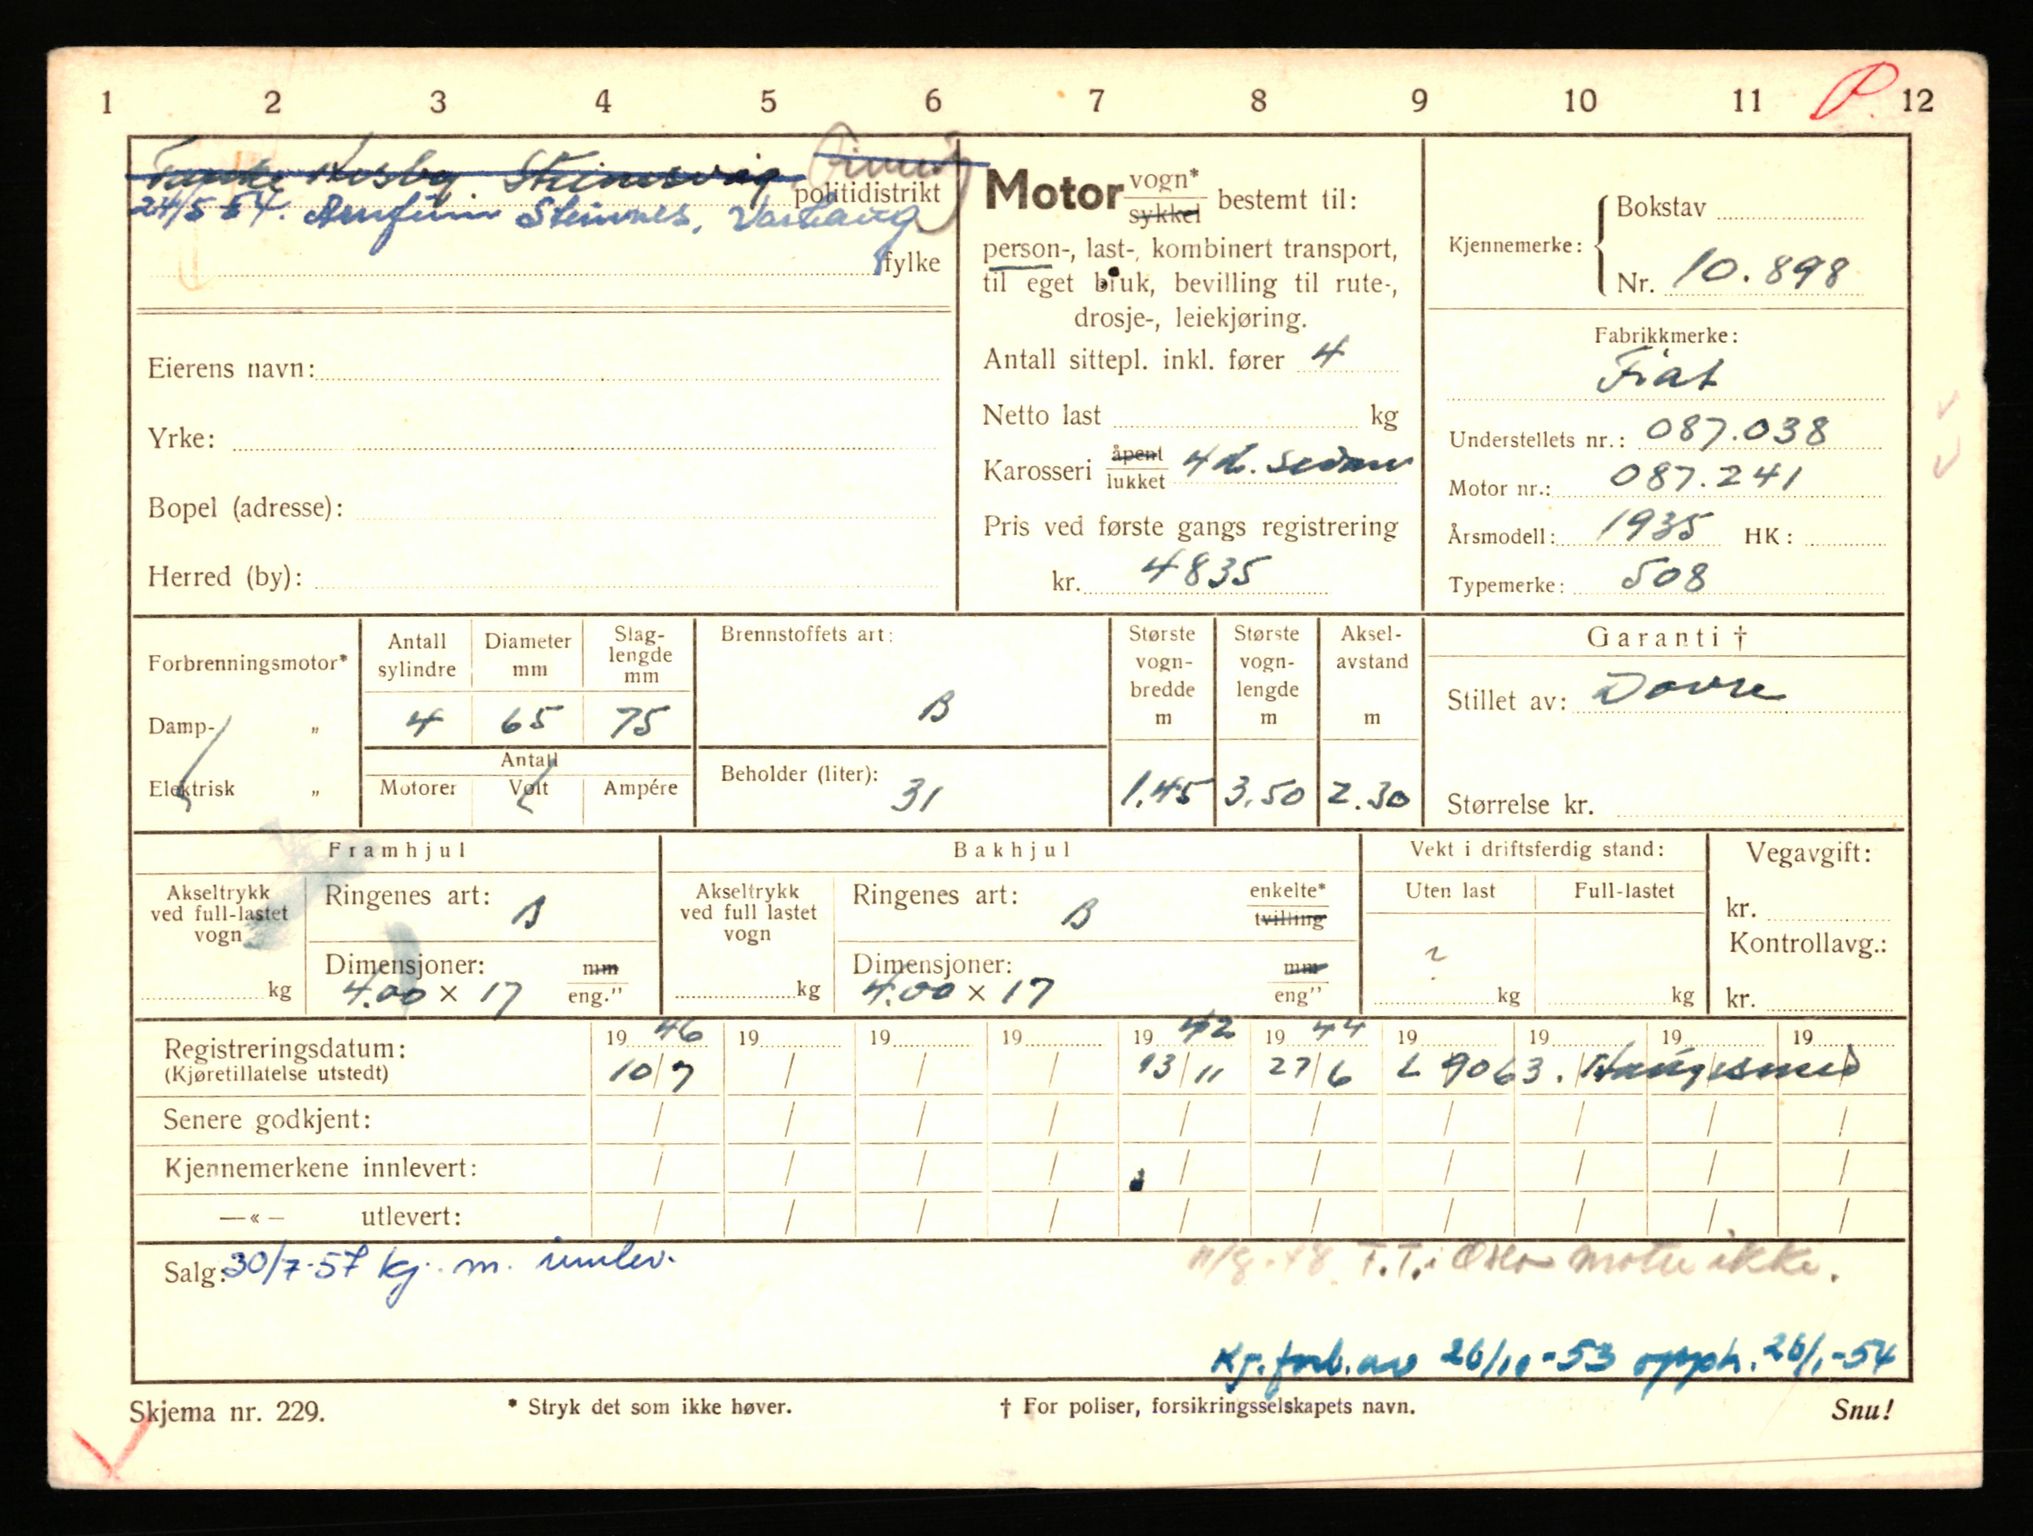 1 2 3 4 5 6 7 8 9 10 11 12
P.
politidistrikt
24/5 54. Arnfinn Steinnes, Varhaug
fylke
Eierens navn:
Yrke:
Bopel (adresse):
Herred (by):
Motor vogn* sykkel bestemt til:
person-, last-, kombinert transport,
til eget bruk, bevilling til rute-,
drosje-, leiekjøring.
Antall sittepl. inkl. fører 4
Netto last kg
Karosseri åpent lukket 4 d. sedan
Pris ved første gangs registrering
kr. 4835
Kjennemerke: Bokstav
Nr. 10.898
Fabrikkmerke:
Fiat
Understellets nr.: 087.038
Motor nr.: 087.241
Årsmodell: 1935 HK:
Typemerke: 508
Forbrenningsmotor*
Damp- „
Elektrisk „
Antall sylindre
Diameter mm
Slag-lengde mm
4 65 75
Antall
Motorer Volt Ampére
Brennstoffets art:
B
Beholder (liter):
31
Største vogn-bredde m
1.45
Største vogn-lengde m
3.50
Aksel-avstand m
2.30
Garanti †
Stillet av: Dovre
Størrelse kr.
Framhjul
Akseltrykk ved full-lastet vogn
kg
Ringenes art:
B
Dimensjoner: mm
4.00 × 17 eng."
Bakhjul
Akseltrykk ved full lastet vogn
kg
Ringenes art: enkelte* tvilling
B
Dimensjoner: mm
4.00 × 17 eng"
Vekt i driftsferdig stand:
Uten last Full-lastet
?
kg kg
Vegavgift:
kr.
Kontrollavg.:
kr.
Registreringsdatum: 19 46 19 19 19 19 42 19 44 19 19 19 19
(Kjøretillatelse utstedt) 10/7 / / / 13/11 27/6 L 9063. Haugesund
Senere godkjent: / / / / / / / / / /
Kjennemerkene innlevert: / / / / / / / / / /
—«— utlevert: / / / / / / / / / /
Salg: 30/7-57 kj. m. innlev.
T.T. i Oslo motu ikke.
Kj. forb. av 26/10-53 opph. 26/1-54
Skjema nr. 229.
* Stryk det som ikke høver.
† For poliser, forsikringsselskapets navn.
Snu!